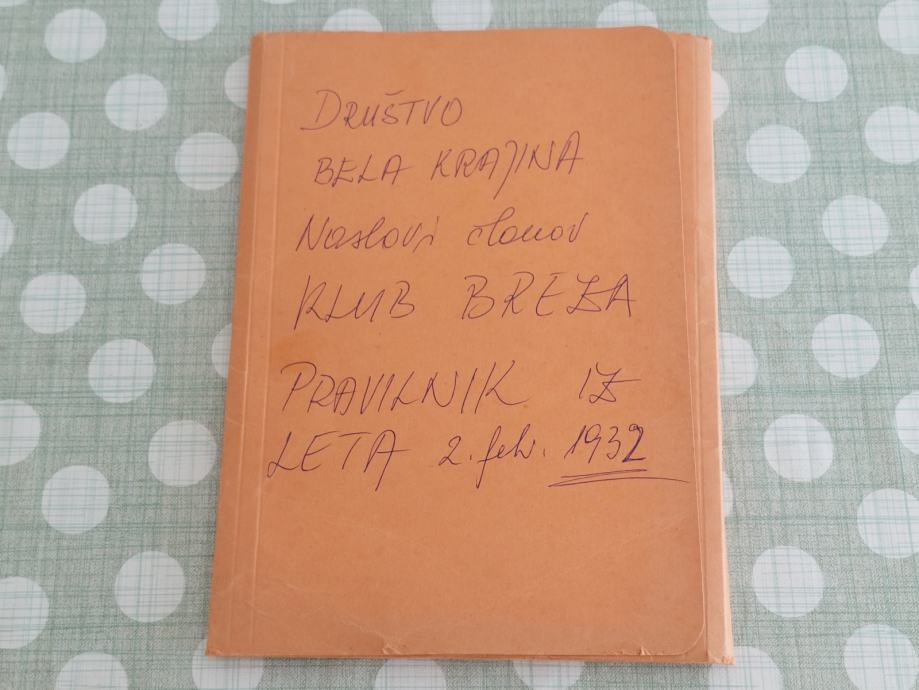 DRUŠTVO
BELA KRAJINA
Naslovi članov
KLUB BREZA
PRAVILNIK IZ
LETA 2. feb. 1932